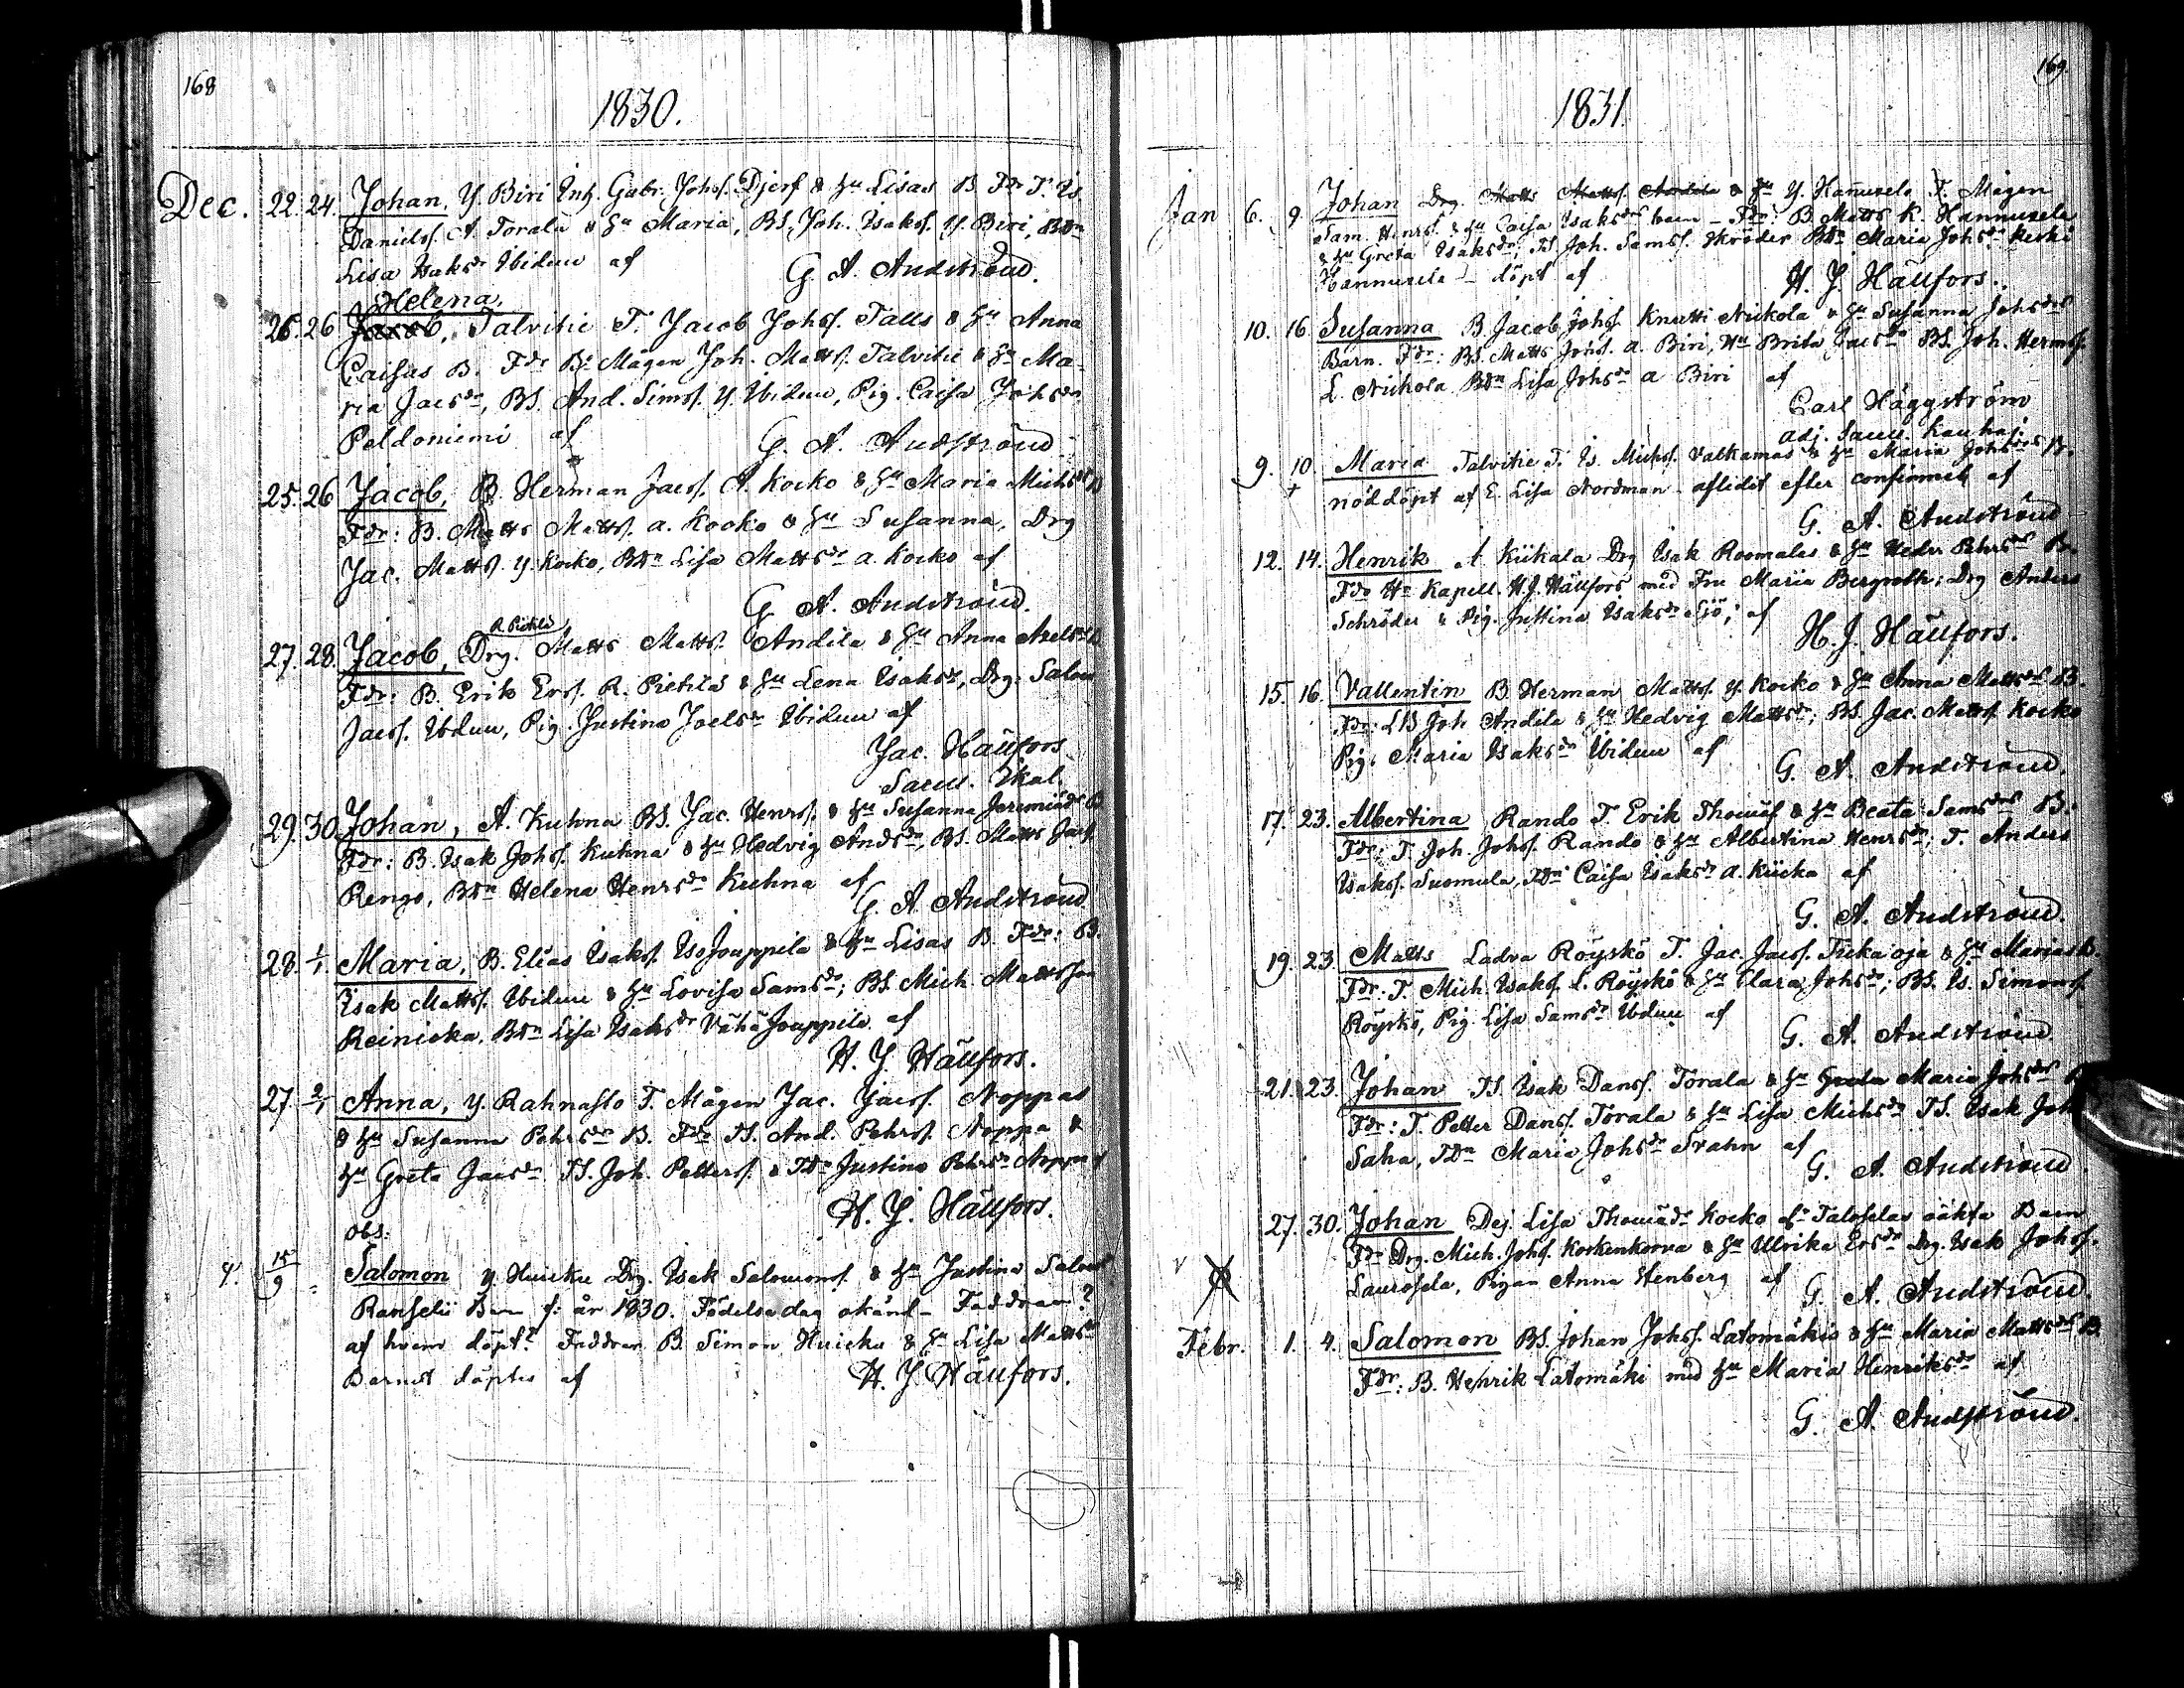 168
1830.
Dec. 22. 24. Johan, Y. Biri Inh. Gabr. Johs. Djerf & Hu Lisas B. Fdr T. Is.
Daniels. A. Torala & Hu Maria, BS. Joh. Isaks. Y. Biri, BDr
Lisa Isaksdr Ibidem af
G. A. Andströud.
Helena,
26. 26 Jacob, Talvitie T. Jacob Johs. Talls & Hu Anna
Caisas B. Fdr B. Mågen Joh. Matts. Talvitie & Hu Ma-
ria Jacsdr, BS. And. Sims. Y. Ibidem, Pig. Caisa Johsdr
Peldoniemi af
G. A. Andströud
25. 26 Jacob, B. Herman Jacs. A. Kocko & Hu Maria Michsdrs B
Fdr: B. Matts Matts. A. Kocko & Hu Susanna, Drg
Jac. Matts. Y. Kocko, BDr Lisa Mattsdr A. Kocko af
G. A. Andströud.
R. Pietilä
27. 28. Jacob, Drg. Matts Matts. Andila & Hu Anna Axelsdrs
Fdr: B. Erik Ers. R. Pietilä & Hu Lena Isaksdr, Drg. Salom
Jacs. Ibdem, Pig. Justina Joelsdr Ibidem af
Jac. Hällfors
Sacell. Ikal.
29. 30. Johan, A. Kuhna BS. Jac. Henrs. & Hu Susanna Jeremiädrs B
Fdr: B. Isak Johs. Kuhna & Hu Hedvig Andsdr, BS. Matts Jacs.
Rengo, BDr Helena Henrsdr Kuhna af
G. A. Andströud
28. 1/1. Maria, B. Elias Isaks. IsoJouppila & Hu Lisas B. Fdr: B.
Isak Matts. Ibidem & Hu Lovisa Samsdr; BS. Mich. Mattsson
Reinicka, BDr Lisa Isaksdr Vähä Jouppila af
H. J. Hällfors.
27. 2/1 Anna, Y. Rahnasto T. Mågen Jac. Jacs. Noppas
& Hu Susanna Pehrsdr B. Fdr TS. And. Pehrs. Noppa &
Hu Greta Jacsdr TS. Joh. Petters. & TDr Justina Pehrsdr Noppa af
H. J. Hällfors.
obs:
15/9 Salomon Y. Huicku Drg. Isak Salomons. & Hu Justina Salomsdr
Ranseli Barn f: år 1830. Födelsedag okänd – Faddrar?
af hvem döpt? Faddrar B. Simon Huicku & Hu Lisa Mattsdr
Barnet döptes af H. J. Hällfors.
169.
1831.
Jan 6. 9. Johan Drg. Matts Matts. Andila & Hu Y. Hannuxela T. Mågen
Sam. Henrs. & Hu Caisa Isaksdrs barn – Fdr: B. Matts K. Hannuxela
& Hu Greta Isaksdr, TS. Joh. Sams. Skröder BDr Maria Johsdr Keski
Hannuxela – döpt af
H. J. Hällfors.
10. 16 Susanna B. Jacob Johs. Knutti Nickola & Hu Susanna Johsdrs
Barn. Fdr: BS. Matts Johs. A. Biri, Hu Brita Jacsdr BS. Joh. Herms.
L. Nickola BDr Lisa Johsdr A Biri af
Carl Häggström
Adj. Sacell. Kauhaj.
9. 10. Maria Talvitie T. Is. Michs. Valkamas & Hu Maria Johsdrs B.
+ nöddöpt af E. Lisa Nordman – aflidit efter confirmeb af
G. A. Andströud
12. 14. Henrik A Kiikala Drg Isak Roomalas & Hu Hedv. Pehrsdrs B.
Fdr Hr Kapell. H. J. Hällfors med Fru Maria Bergroth; Drg Anders
Schröder & Pig. Justina Isaksdr Sjö; af
H. J. Hällfors.
15. 16. Vallentin B. Herman Matts. Y. Kocko & Hu Anna Mattsdrs B.
Fdr: LB Joh Andila & Hu Hedvig Mattsdr; BS. Jac. Matts. Kocko
Pig. Maria Isaksdr Ibidem af
G. A. Andströud.
17. 23. Albertina Rando T. Erik Thomäs. & Hu Beata Samsdrs B.
Fdr: T. Joh. Johs. Rando & Hu Albertina Henrsdr; T. Anders
Isaks. Suomula, TDr Caisa Isaksdr A. Kiicka af
G. A. Andströud.
19. 23. Matts Ladva Röyskö T. Jac. Jacs. Tuka oja & Hu Marias B.
Fdr: T. Mich. Isaks. L. Röyskö & Hu Clara Johsdr; BS. Is. Simons.
Röyskö, Pig. Lisa Samsdr Ibdem af
G. A. Andströud
21. 23. Johan TS. Isak Dans. Torala & Hu Greta Maria Johsdrs B
Fdr: T. Petter Dans. Torala & Hu Lisa Michsdr TS. Isak Joh
Saha, TDr Maria Johsdr Svahn af
G. A. Andströud
27. 30. Johan Dej. Lisa Thomädr Kocko afr Taloselas oäkta Barn
Fdr Drg. Mich. Johs. Korkenkorva & Hu Ulrika Ersdr Drg. Isak Johs.
Laurosela, Pigan Anna Stenberg af
G. A. Andströud.
Febr. 1. 4. Salomon BS. Johan Johs. Latomäkis & Hu Maria Mattsdrs B.
Fdr: B. Henrik Latomäki med Hu Maria Henriksdr af
G. A. Andströud.